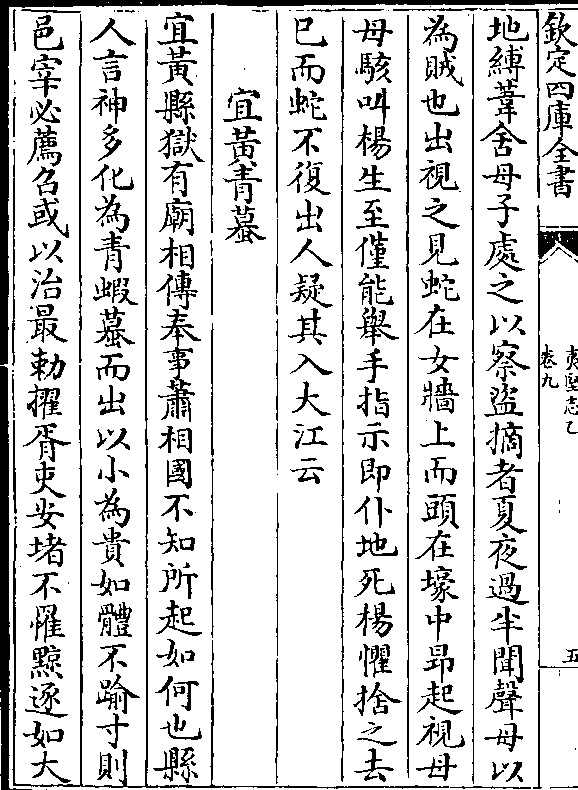 欽定四庫全書
夷堅志乙
卷九
五
地縛葦舍母子處之以察盜摘者夏夜過半聞聲母以
為賊也出視之見蛇在女牆上而頭在壕中昂起視母
母駭叫楊生至僅能舉手指示即仆地死楊懼捨之去
已而蛇不復出人疑其入大江云
宜黃青蟇
宜黃縣獄有廟相傳奉事蕭相國不知所起如何也縣
人言神多化為青蝦蟇而出以小為貴如體不踰寸則
邑宰必薦召或以治最勅擢胥吏安堵不罹黥逐如大